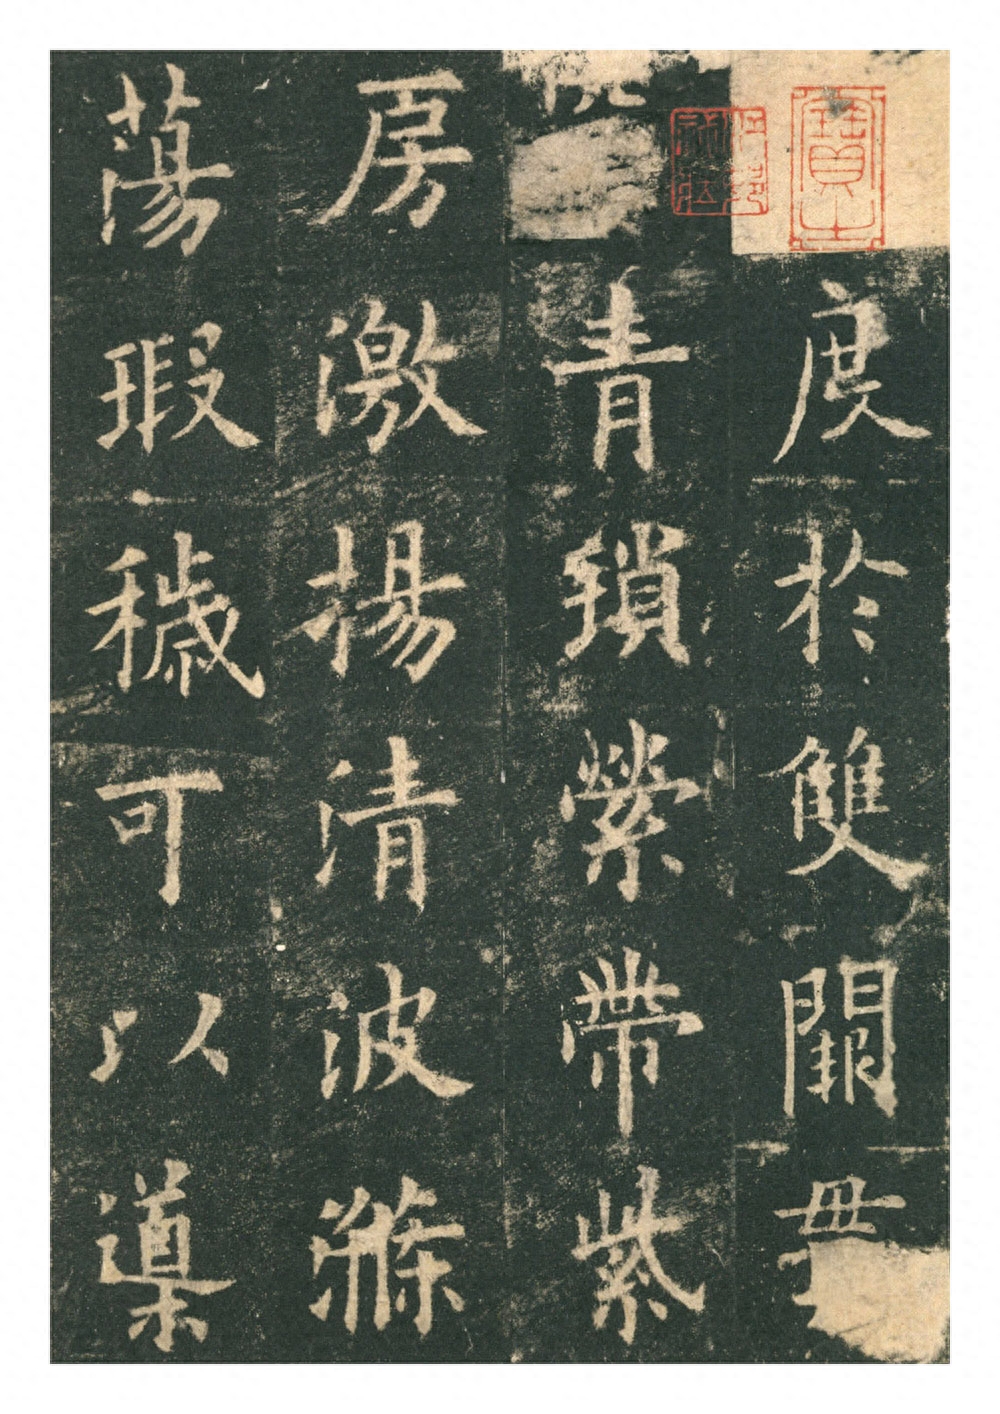 度於雙闕貫
青瑣縈帶紫
房激揚清波滌
蕩瑕穢可以導